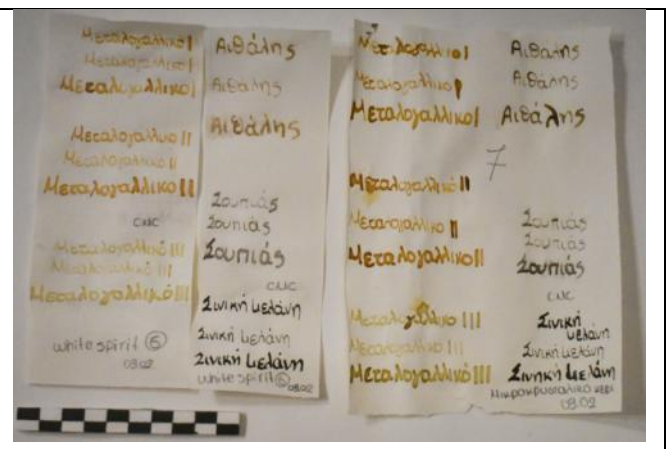 Μεταλογαλλικό I
Μεταλογαλλικό I
Μεταλογαλλικό I
Μεταλογαλλικό II
Μεταλογαλλικό II
Μεταλογαλλικό II
CMC
Μεταλογαλλικό III
Μεταλογαλλικό III
Μεταλογαλλικό III
white spirit 5
03.02
Αιθάλης
Αιθάλης
Αιθάλης
Σουπιάς
Σουπιάς
Σουπιάς
CMC
Σινική μελάνη
Σινική μελάνη
Σινική μελάνη
white spirit 5
03.02
Μεταλογαλλικό I
Μεταλογαλλικό I
Μεταλογαλλικό I
Μεταλογαλλικό II
Μεταλογαλλικό II
Μεταλογαλλικό II
Μεταλογαλλικό III
Μεταλογαλλικό III
Μεταλογαλλικό III
Αιθάλης
Αιθάλης
Αιθάλης
7
Σουπιάς
Σουπιάς
Σουπιάς
CMC
Σινική
μελάνη
Σινική μελάνη
Σινηκή μελάνη
Μικροκρυσταλικο κερι
03.02